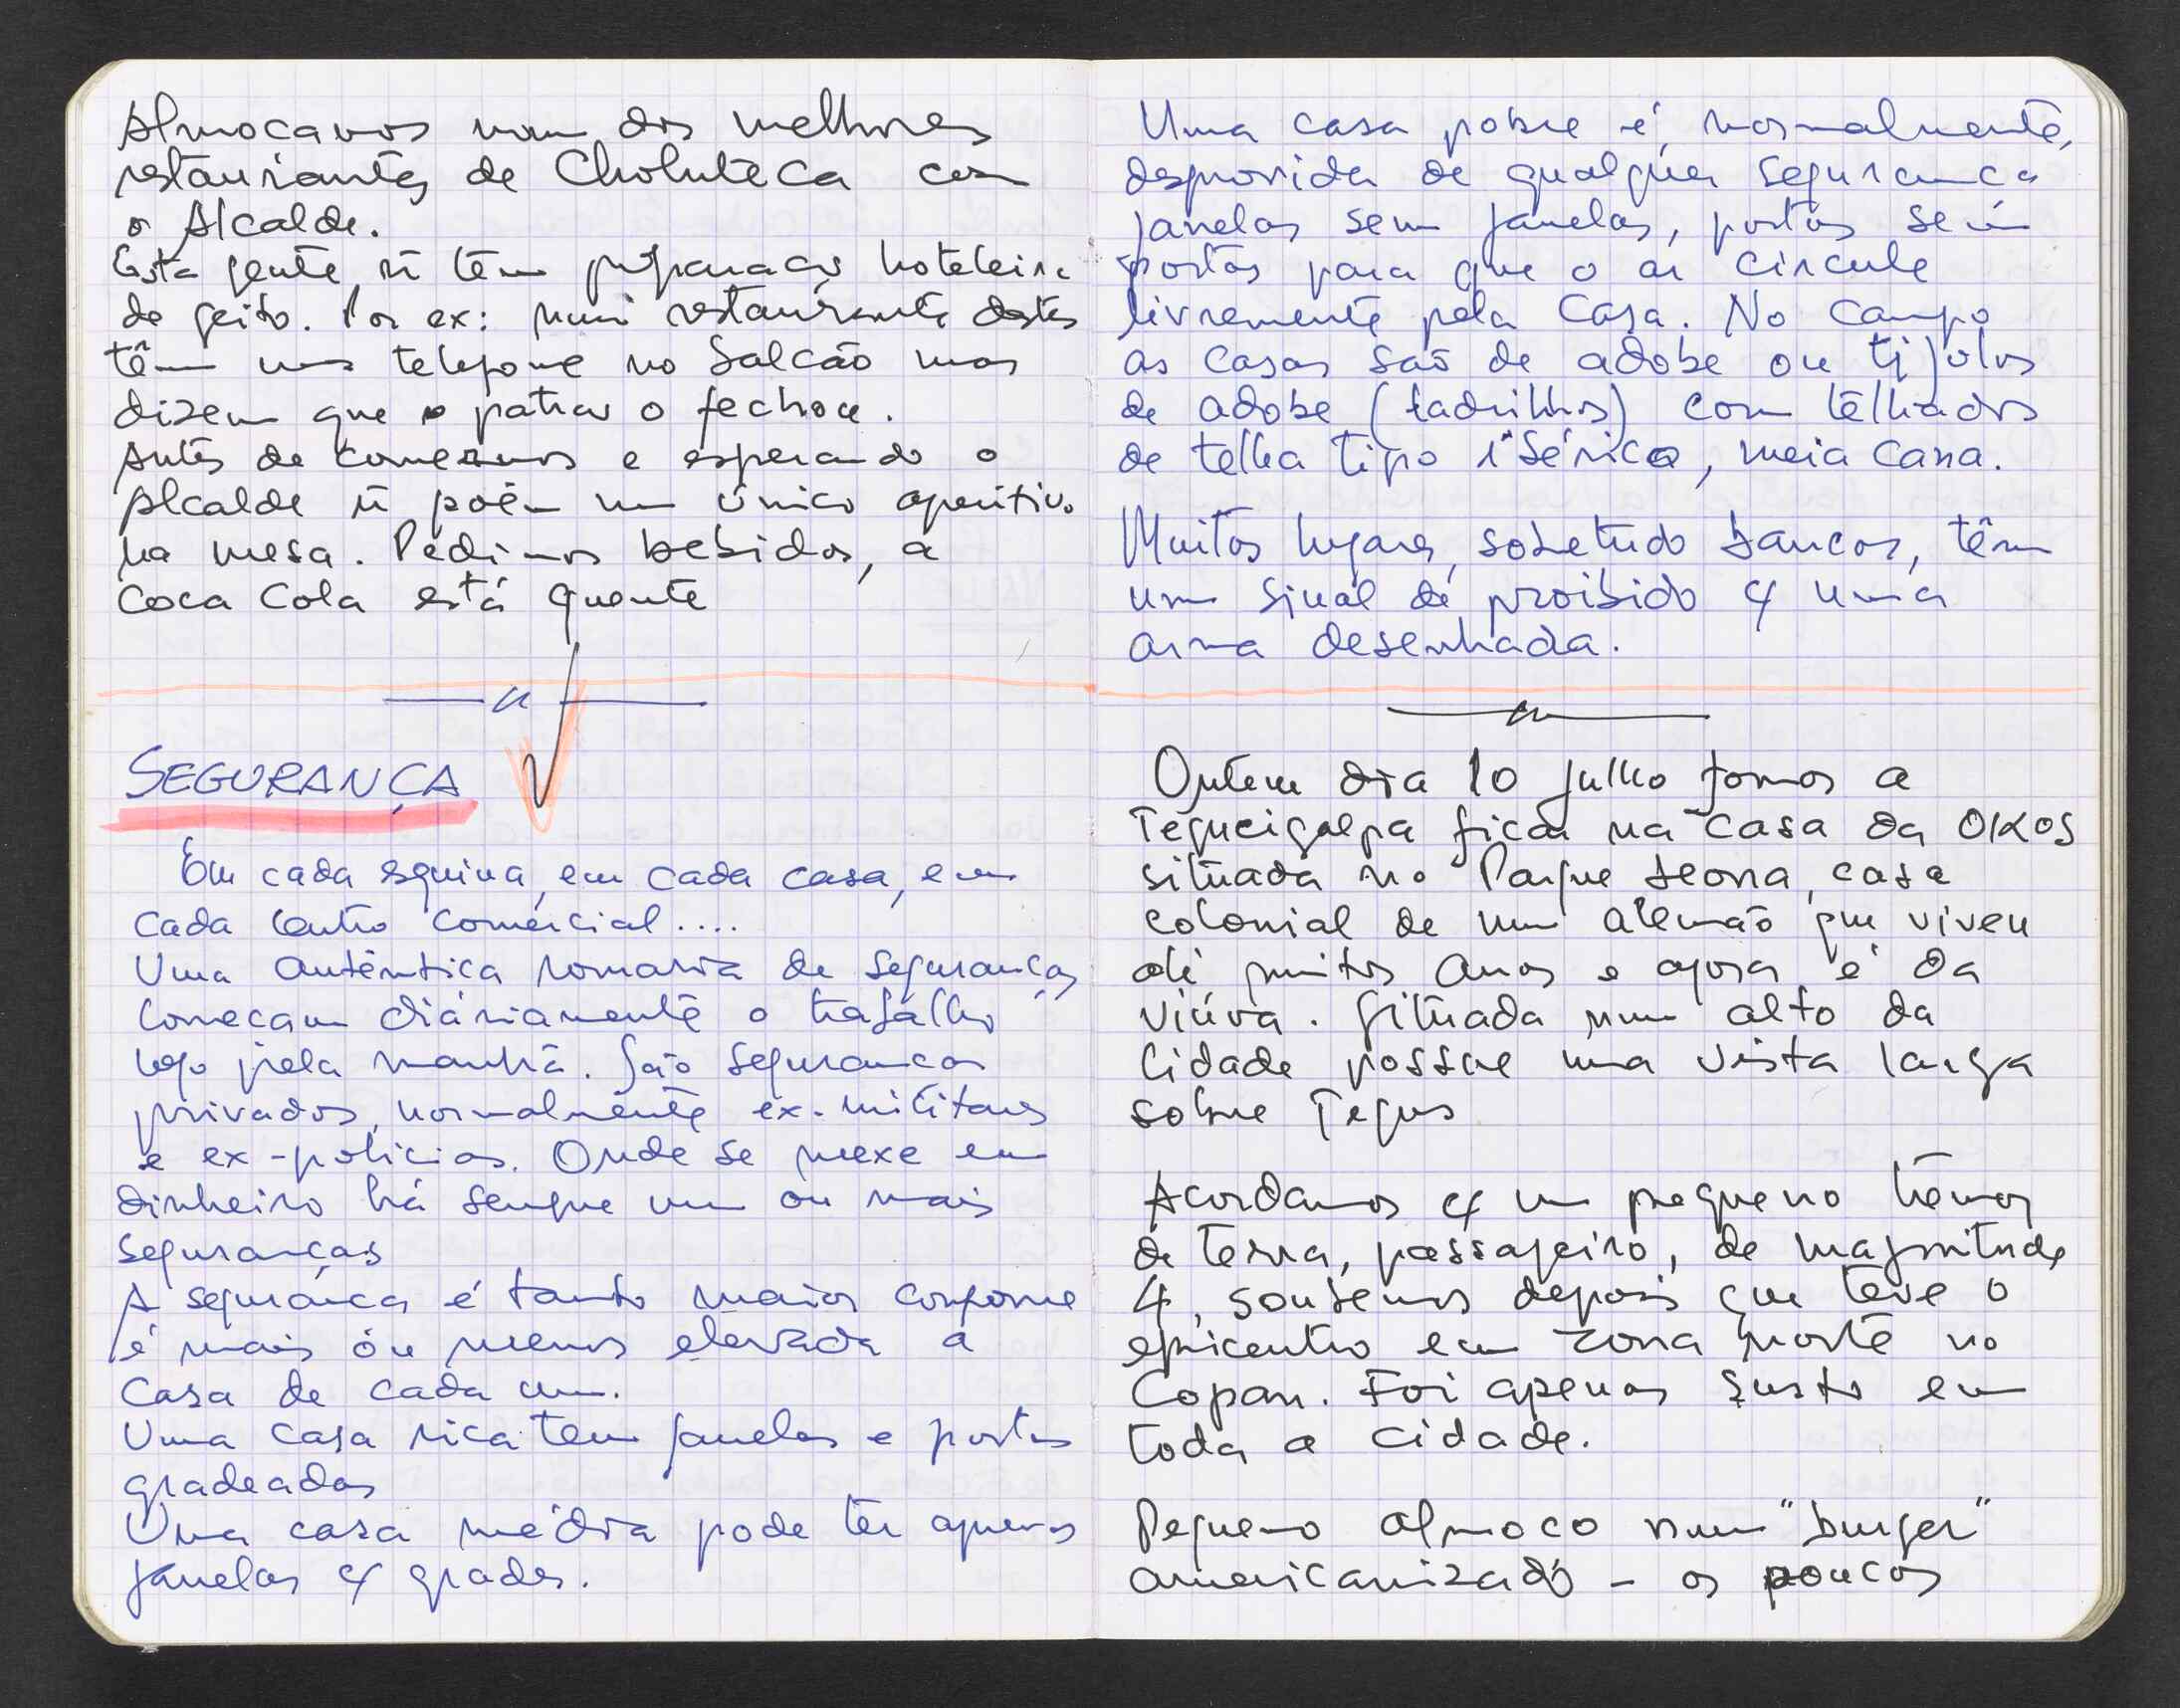 Almoçamos num dos melhores
restaurantes de Choluteca com
o Alcalde.
Esta gente ñ têm preparação hoteleira
de geito. Por ex: num restaurante destes
têm um telefone no balcão mas
dizem que o patrão o fechou.
Antes de comermos e esperando o
Alcalde ñ poêm um único aperitivo
na mesa. Pedimos bebidas, a
Coca Cola está quente
SEGURANÇA
Em cada esquina, em cada casa, em
cada centro comercial....
Uma autêntica romaria de seguranças
começam diáriamente o trabalho
logo pela manhã. São seguranças
privados, normalmente ex-militares
e ex-policias. Onde se mexe em
dinheiro há sempre um ou mais
seguranças
A segurança é tanto maior conforme
é mais ou menos elevada a
casa de cada um.
Uma casa rica tem janelas e portas
gradeadas
Uma casa média pode ter apenas
janelas c/ grades.
Uma casa pobre é, normalmente,
desprovida de qualquer segurança
janelas sem janelas, portas sem
portas para que o ar circule
livremente pela casa. No campo
as casas são de adobe ou tijolos
de adobe (ladrilhos) com telhados
de telha tipo ibérica, meia cana.
Muitos lugares, sobetudo bancos, têm
um sinal de proibido c/ uma
arma desenhada.
Ontem dia 10 julho fomos a
Tegucigalpa ficar na casa da OIKOS
situada no Parque Leona, casa
colonial de um alemão que viveu
ali muitos anos e agora é da
viúva. Situada num alto da
cidade possue uma vista larga
sobre Tegus
Acordamos c/ um pequeno tremor
de terra, passageiro, de magnitude
4, soubemos depois que teve o
epicentro em zona norte no
Copan. Foi apenas susto em
toda a cidade.
Pequeno almoço num "burger"
americanizado - os poucos